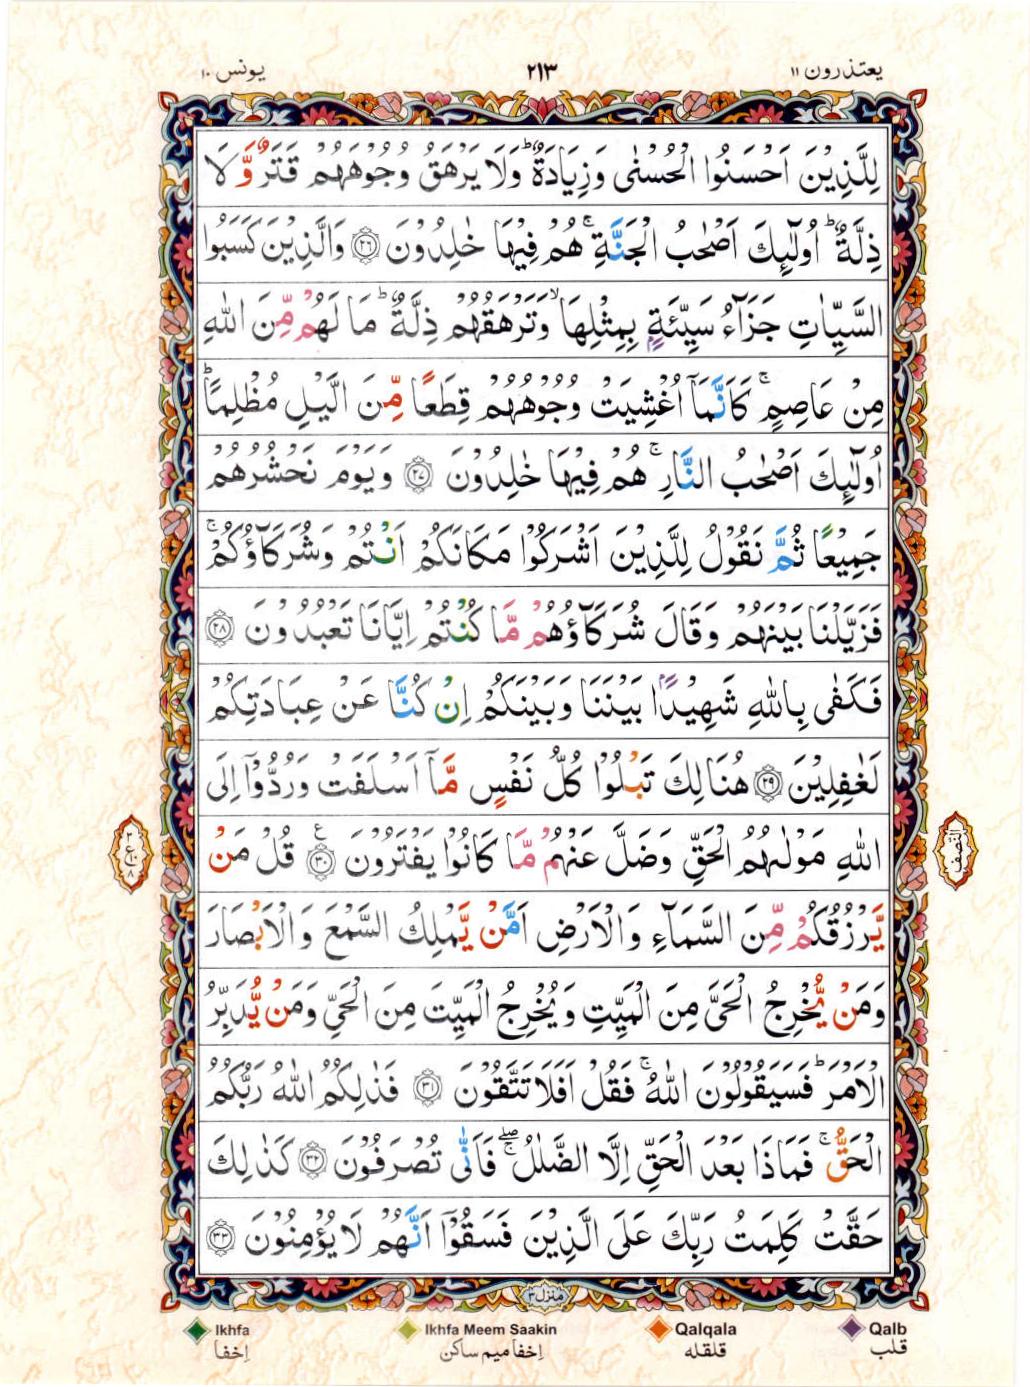 يعتذرون ١١
٢١٣
يونس ١٠
لِلَّذِيْنَ اَحْسَنُوا الْحُسْنٰى وَزِيَادَةٌ ؕ وَلَا يَرْهَقُ وُجُوْهَهُمْ قَتَرٌ وَّ لَا
ذِلَّةٌ ؕ اُولٰٓئِكَ اَصْحٰبُ الْجَنَّةِ ۚ هُمْ فِيْهَا خٰلِدُوْنَ ۝٢٦ وَالَّذِيْنَ كَسَبُوا
السَّيِّاٰتِ جَزَآءُ سَيِّئَةٍۭ بِمِثْلِهَا ۙ وَتَرْهَقُهُمْ ذِلَّةٌ ؕ مَا لَهُمْ مِّنَ اللّٰهِ
مِنْ عَاصِمٍ ۚ كَاَنَّمَاۤ اُغْشِيَتْ وُجُوْهُهُمْ قِطَعًا مِّنَ الَّيْلِ مُظْلِمًا ؕ
اُولٰٓئِكَ اَصْحٰبُ النَّارِ ۚ هُمْ فِيْهَا خٰلِدُوْنَ ۝٢٧ وَيَوْمَ نَحْشُرُهُمْ
جَمِيْعًا ثُمَّ نَقُوْلُ لِلَّذِيْنَ اَشْرَكُوْا مَكَانَكُمْ اَنْتُمْ وَشُرَكَآؤُكُمْ ۚ
فَزَيَّلْنَا بَيْنَهُمْ وَقَالَ شُرَكَآؤُهُمْ مَّا كُنْتُمْ اِيَّانَا تَعْبُدُوْنَ ۝٢٨
فَكَفٰى بِاللّٰهِ شَهِيْدًۢا بَيْنَنَا وَبَيْنَكُمْ اِنْ كُنَّا عَنْ عِبَادَتِكُمْ
لَغٰفِلِيْنَ ۝٢٩ هُنَالِكَ تَبْلُوْا كُلُّ نَفْسٍ مَّاۤ اَسْلَفَتْ وَرُدُّوْۤا اِلَى
اللّٰهِ مَوْلٰىهُمُ الْحَقِّ وَضَلَّ عَنْهُمْ مَّا كَانُوْا يَفْتَرُوْنَ ۝٣٠ ع قُلْ مَنْ
يَّرْزُقُكُمْ مِّنَ السَّمَآءِ وَالْاَرْضِ اَمَّنْ يَّمْلِكُ السَّمْعَ وَالْاَبْصَارَ
وَمَنْ يُّخْرِجُ الْحَيَّ مِنَ الْمَيِّتِ وَيُخْرِجُ الْمَيِّتَ مِنَ الْحَيِّ وَمَنْ يُّدَبِّرُ
الْاَمْرَ ؕ فَسَيَقُوْلُوْنَ اللّٰهُ ۚ فَقُلْ اَفَلَا تَتَّقُوْنَ ۝٣١ فَذٰلِكُمُ اللّٰهُ رَبُّكُمُ
الْحَقُّ ۚ فَمَاذَا بَعْدَ الْحَقِّ اِلَّا الضَّلٰلُ ۖۚ فَاَنّٰى تُصْرَفُوْنَ ۝٣٢ كَذٰلِكَ
حَقَّتْ كَلِمَتُ رَبِّكَ عَلَى الَّذِيْنَ فَسَقُوْۤا اَنَّهُمْ لَا يُؤْمِنُوْنَ ۝٣٣
النّصف
٣ ع ١٠ ٨
منزل ٣
Ikhfa
Ikhfa Meem Saakin
Qalqala
Qalb
اِخفا
اِخفا ميم ساكن
قلقله
قلب